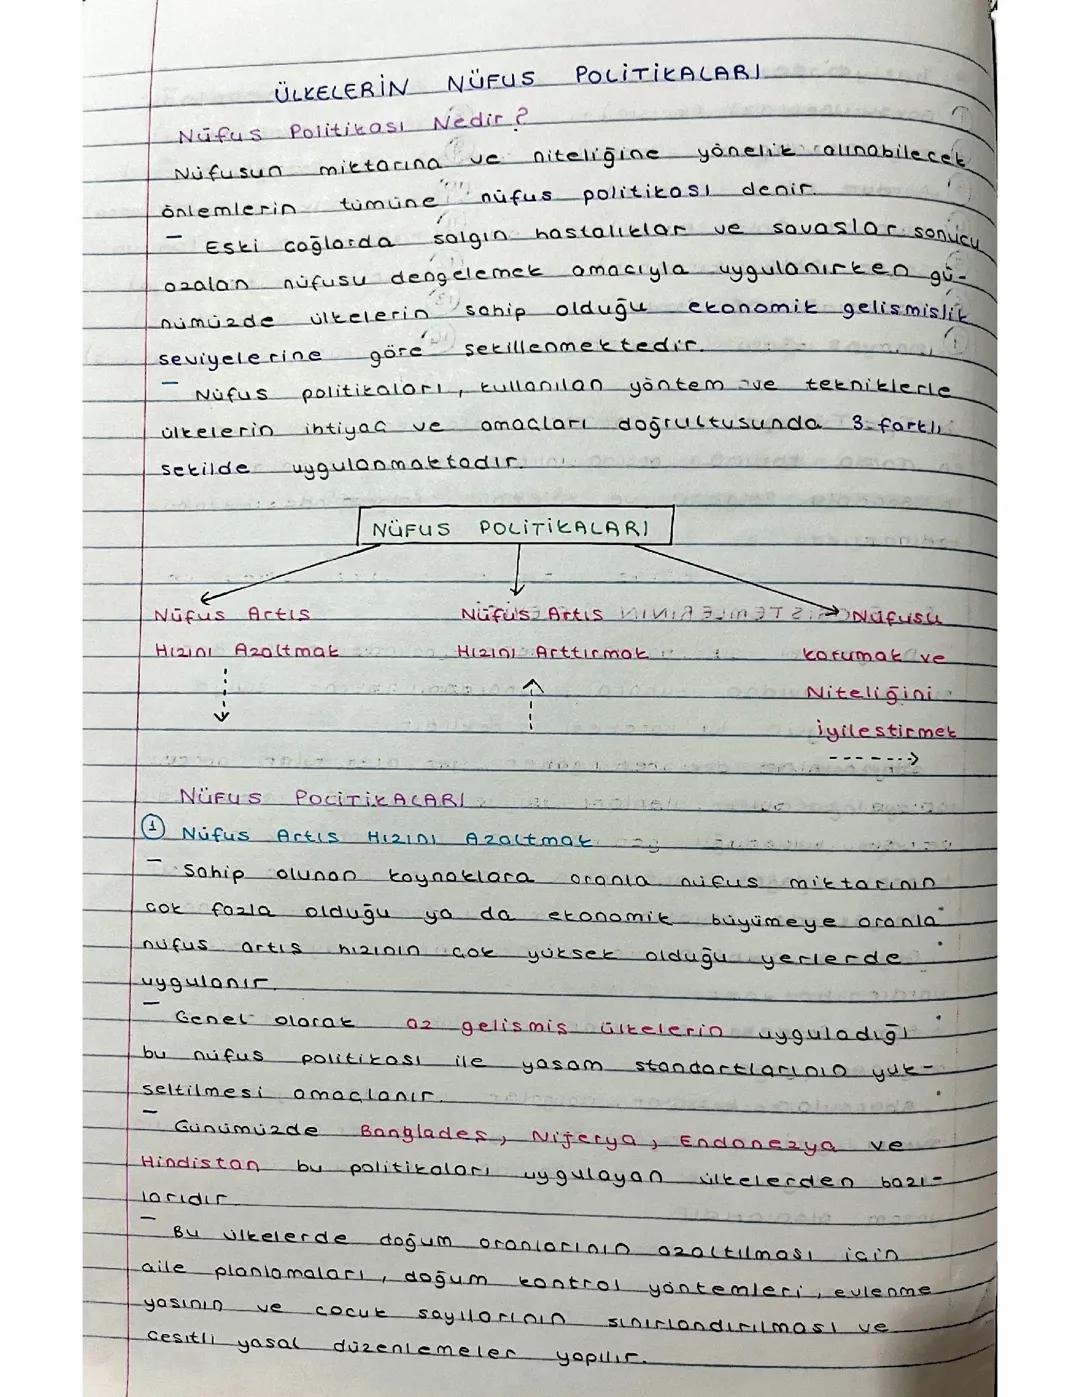 ÜLKELERİN NÜFUS POLİTİKALARI
Nüfus Politikası Nedir?
Nüfusun miktarına ve niteliğine yönelik alınabilecek
önlemlerin tümüne nüfus politikası denir.
- Eski çağlarda salgın hastalıklar ve savaşlar sonucu
azalan nüfusu dengelemek amacıyla uygulanırken gü-
nümüzde ülkelerin sahip olduğu ekonomik gelişmişlik
seviyelerine göre şekillenmektedir.
- Nüfus politikaları, kullanılan yöntem ve tekniklerle
ülkelerin ihtiyaç ve amaçları doğrultusunda 3 farklı
şekilde uygulanmaktadır.
NÜFUS POLİTİKALARI
Nüfus Artış
Hızını Azaltmak
Nüfus Artış
Hızını Arttırmak
Nüfusu
Korumak ve
Niteliğini
İyileştirmek
NÜFUS POLİTİKALARI
1 Nüfus Artış Hızını Azaltmak
- Sahip olunan kaynaklara oranla nüfus miktarının
çok fazla olduğu ya da ekonomik büyümeye oranla
nüfus artış hızının çok yüksek olduğu yerlerde
uygulanır.
- Genel olarak az gelişmiş ülkelerin uyguladığı
bu nüfus politikası ile yaşam standartlarının yük-
seltilmesi amaçlanır.
- Günümüzde Bangladeş, Nijerya, Endonezya ve
Hindistan bu politikaları uygulayan ülkelerden bazı-
larıdır.
- Bu ülkelerde doğum oranlarının azaltılması için
aile planlamaları, doğum kontrol yöntemleri, evlenme
yaşının ve çocuk sayılarının sınırlandırılması ve
çeşitli yasal düzenlemeler yapılır.